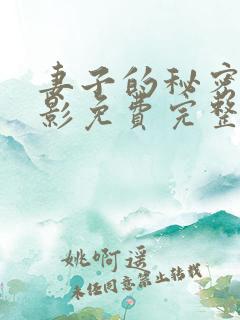 妻子的秘密
影免费完整
姚啊遥
未经同意禁止转载